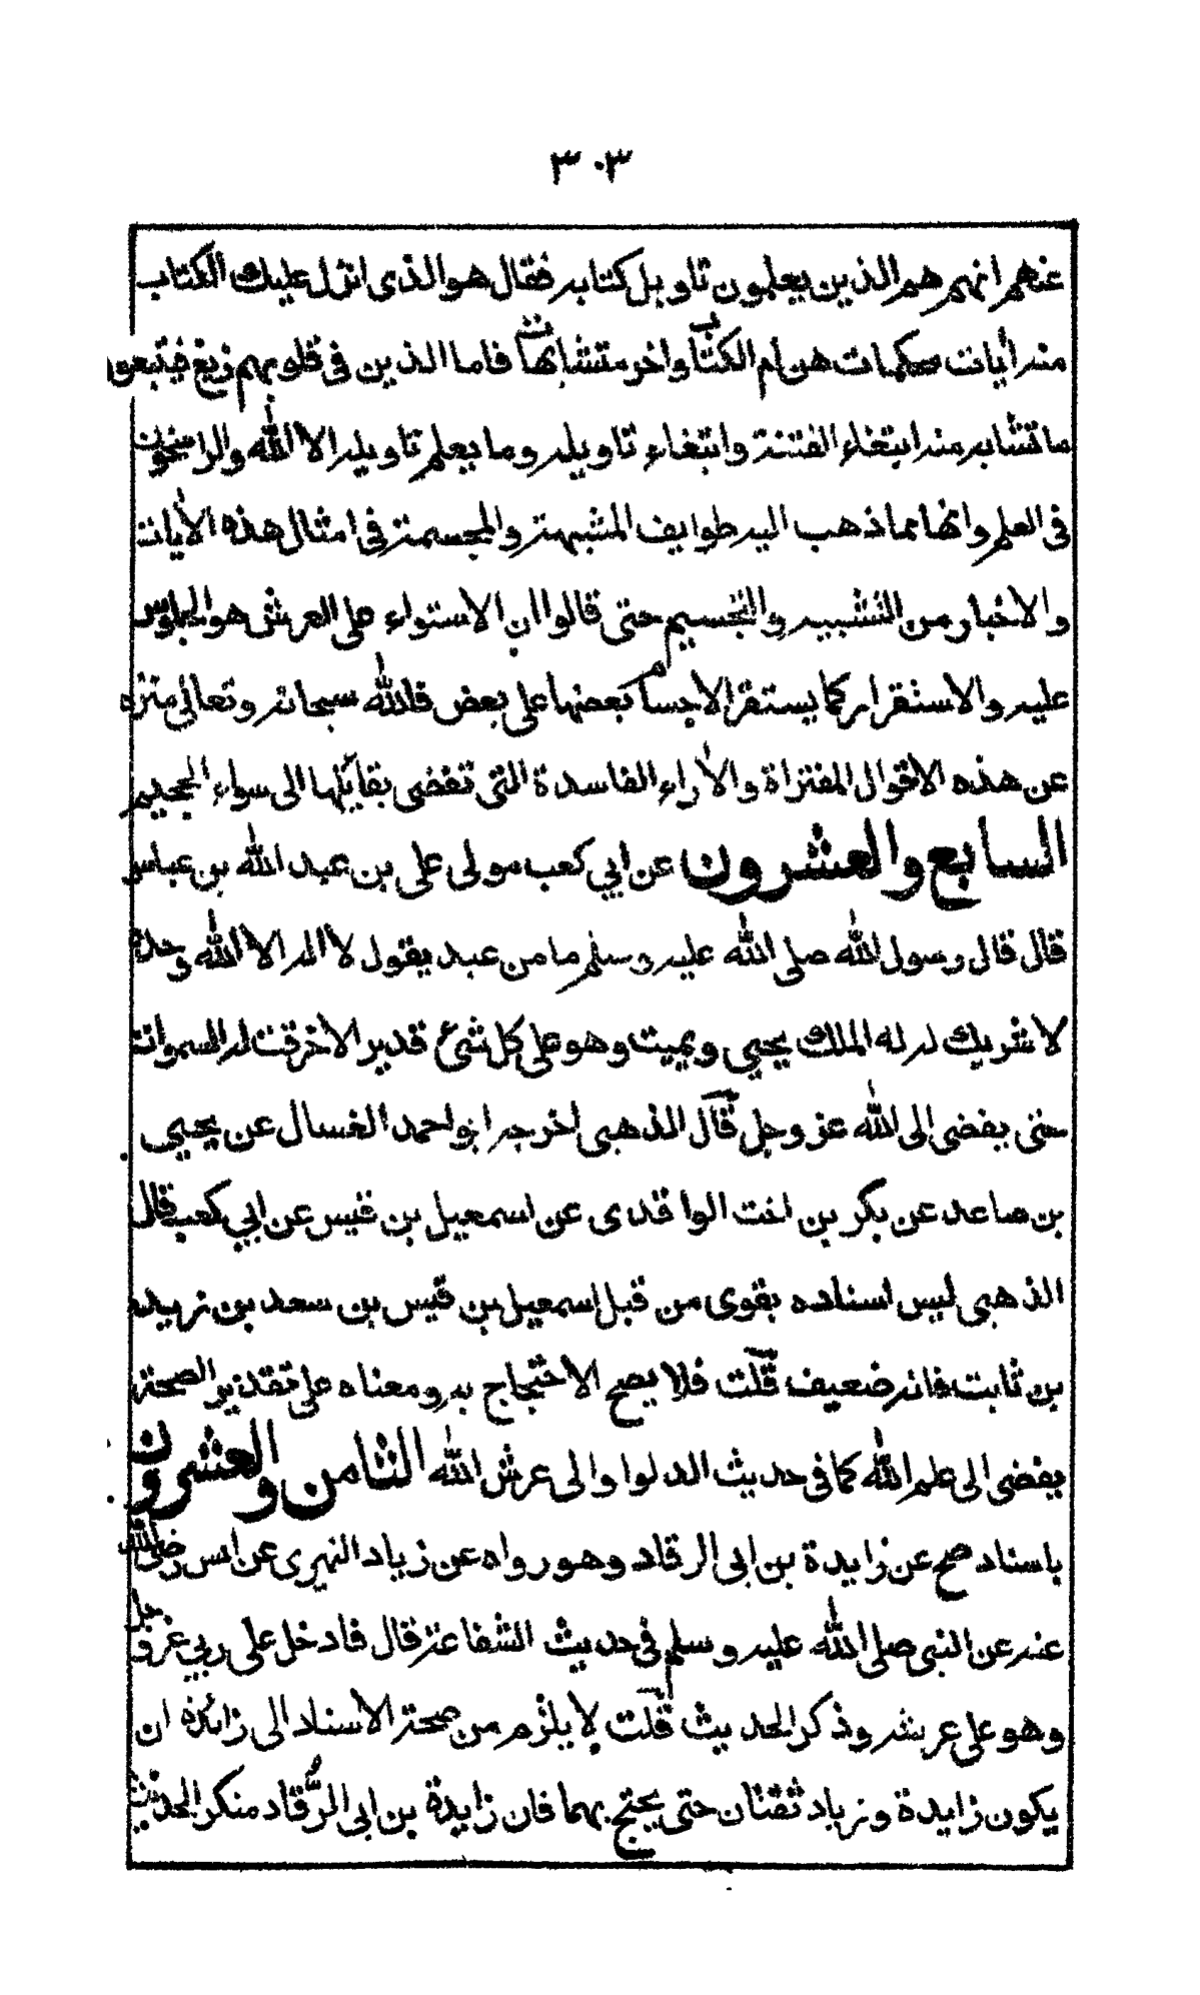 ٣٠٣
عنهم انهم هم الذين يعلمون تاويل كتابه فقال هو الذى انزل عليك الكتاب
منه أيات محكمات هن ام الكتاب واخر متشابهات فاما الذين فى قلوبهم زيغ فيتبعون
ما تشابه منه ابتغاء الفتنة وابتغاء تاويله وما يعلم تاويله الا الله والراسخون
فى العلم وانها مما ذهب اليه طوايف المشبهة والمجسمة فى امثال هذه الأيات
والاخبار من التشبيه والتجسيم حتى قالوا ان الاستواء على العرش هو الجلوس
عليه والاستقرار كما يستقر الاجسام بعضها على بعض فالله سبحانه وتعالى منزه
عن هذه الاقوال المفتراة والأراء الفاسدة التى تفضى بقائلها الى سواء الجحيم
السابع والعشرون عن ابي كعب مولى على بن عبد الله بن عباس
قال قال رسول الله صلى الله عليه وسلم ما من عبد يقول لا اله الا الله وحده
لا شريك له له الملك يحيي ويميت وهو على كل شئ قدير الا خرقت له السموات
حتى يفضى الى الله عز وجل قال الذهبى اخرجه ابو احمد الغسال عن يحيي
بن صاعد عن بكر بن اخت الواقدى عن اسمعيل بن قيس عن ابي كعب قال
الذهبى ليس اسناده بقوى من قبل اسمعيل بن قيس بن سعد بن زيد
بن ثابت فانه ضعيف قلت فلا يصح الاحتجاج به ومعناه على تقدير الصحة
يفضى الى علم الله كما فى حديث الدلو او الى عرش الله الثامن والعشرون
باسناد صح عن زايدة بن ابى الرقاد وهو رواه عن زياد النميرى عن انس رضى الله
عنه عن النبى صلى الله عليه وسلم فى حديث الشفاعة قال فادخل على ربي عز وجل
وهو على عرشه وذكر الحديث قلت لا يلزم من صحة الاسناد الى زائدة ان
يكون زايدة وزياد ثقتان حتى يحتج بهما فان زايدة بن ابى الرُّقاد منكر الحديث